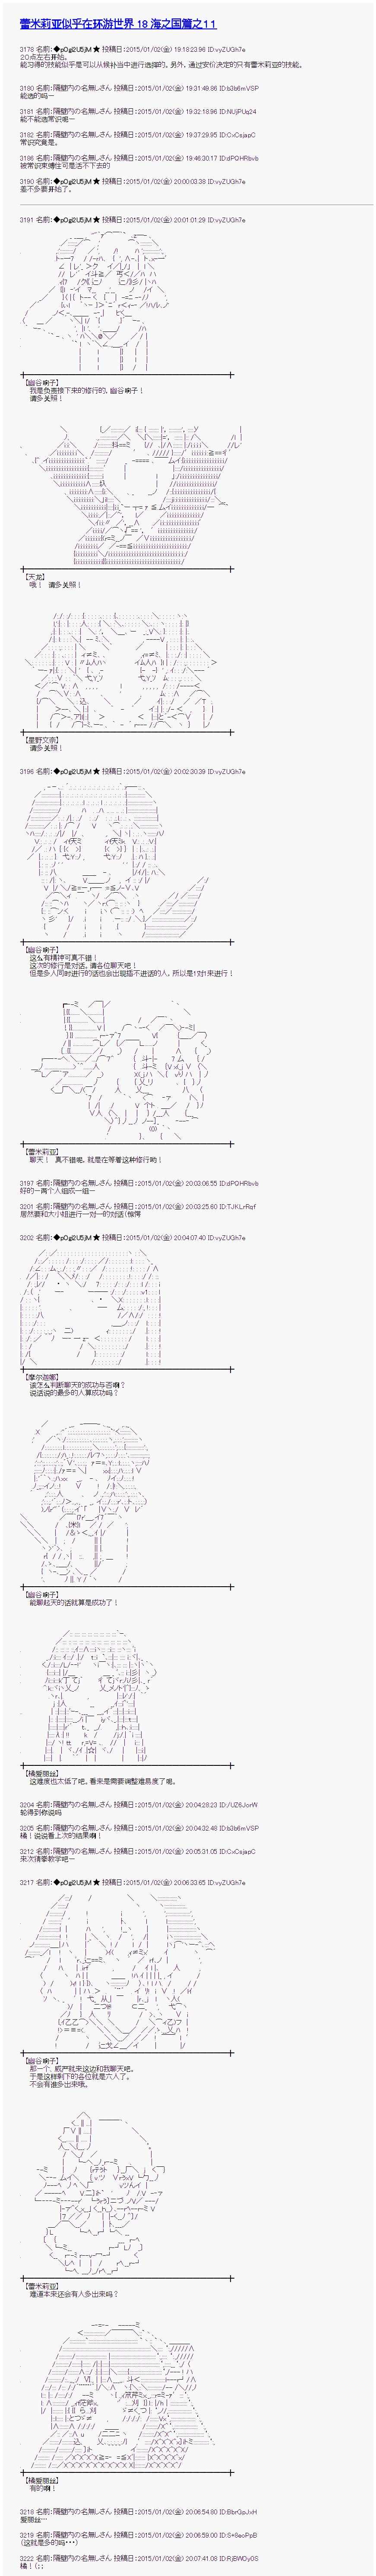 蕾米莉亚似乎在环游世界 18 海之国篇之11
3178 名前:◆pOgI2U5jM ★ 投稿日:2015/01/02(金) 19:18:23.96 ID:vyZUGh7e
20点左右开始。
能习得的技能似乎是可以从候补当中进行选择的。另外，通过安价决定的只有蕾米莉亚的技能。
3180 名前:隔壁内の名無しさん 投稿日:2015/01/02(金) 19:31:49.86 ID:b3b6mVSP
能选的吗一
3181 名前:隔壁内の名無しさん 投稿日:2015/01/02(金) 19:32:18.96 ID:NUjPUq24
能不能选常识呢一
3182 名前:隔壁内の名無しさん 投稿日:2015/01/02(金) 19:37:29.95 ID:CxCsjapC
常识究竟是。
3186 名前:隔壁内の名無しさん 投稿日:2015/01/02(金) 19:46:30.17 ID:dPQHRbvb
被常识束缚住可是活不下去的
3190 名前:◆pOgI2U5jM ★ 投稿日:2015/01/02(金) 20:00:03.38 ID:vyZUGh7e
差不多要开始了。
3191 名前:◆pOgI2U5jM ★ 投稿日:2015/01/02(金) 20:01:01.29 ID:vyZUGh7e
【幽谷响子】
我是负责接下来的修行的，幽谷响子！
请多关照！
【天龙】
哦！ 请多关照！
【星野文宗】
请多关照！
3196 名前:◆pOgI2U5jM ★ 投稿日:2015/01/02(金) 20:02:30.39 ID:vyZUGh7e
【幽谷响子】
这么有精神可真不错！
这次的修行是对话。请各位聊天吧！
但是多人同时进行的话也会出现插不进话的人，所以是1对1来进行！
【蕾米莉亚】
聊天！ 真不错呢。就是在等着这种修行哟！
3197 名前:隔壁内の名無しさん 投稿日:2015/01/02(金) 20:03:06.55 ID:dPQHRbvb
好的一两个人组成一组一
3201 名前:隔壁内の名無しさん 投稿日:2015/01/02(金) 20:03:25.60 ID:TJKLrRqf
居然要和大小姐进行一对一的对话(惊愕
3202 名前:◆pOgI2U5jM ★ 投稿日:2015/01/02(金) 20:04:07.40 ID:vyZUGh7e
【摩尔迦娜】
该怎么判断聊天的成功与否啊？
说话说的最多的人算成功吗？
【幽谷响子】
能聊起天的话就算是成功了！
【橘爱丽丝】
这难度也太低了吧。看来是需要调整难易度了呢。
3204 名前:隔壁内の名無しさん 投稿日:2015/01/02(金) 20:04:28.23 ID:/UZ6JorW
轮得到你说吗
3205 名前:隔壁内の名無しさん 投稿日:2015/01/02(金) 20:04:32.48 ID:b3b6mVSP
橘！说说看上次的结果啊！
3212 名前:隔壁内の名無しさん 投稿日:2015/01/02(金) 20:05:31.05 ID:CxCsjapC
来次猜拳教学吧一
3217 名前:◆pOgI2U5jM ★ 投稿日:2015/01/02(金) 20:06:33.65 ID:vyZUGh7e
【幽谷响子】
那一个，威严就来这边和我聊天吧。
于是这样剩下的各位就是六人了。
不会有谁多出来哦。
【蕾米莉亚】
难道本来还会有人多出来吗？
【橘爱丽丝】
有的啊！
3218 名前:隔壁内の名無しさん 投稿日:2015/01/02(金) 20:06:54.80 ID:BbrGpJxH
爱丽丝…
3219 名前:隔壁内の名無しさん 投稿日:2015/01/02(金) 20:06:59.00 ID:S+8eoPpB
(这就是多的吗･･･)
3222 名前:隔壁内の名無しさん 投稿日:2015/01/02(金) 20:07:41.08 ID:RjBWDyOS
橘！(；；